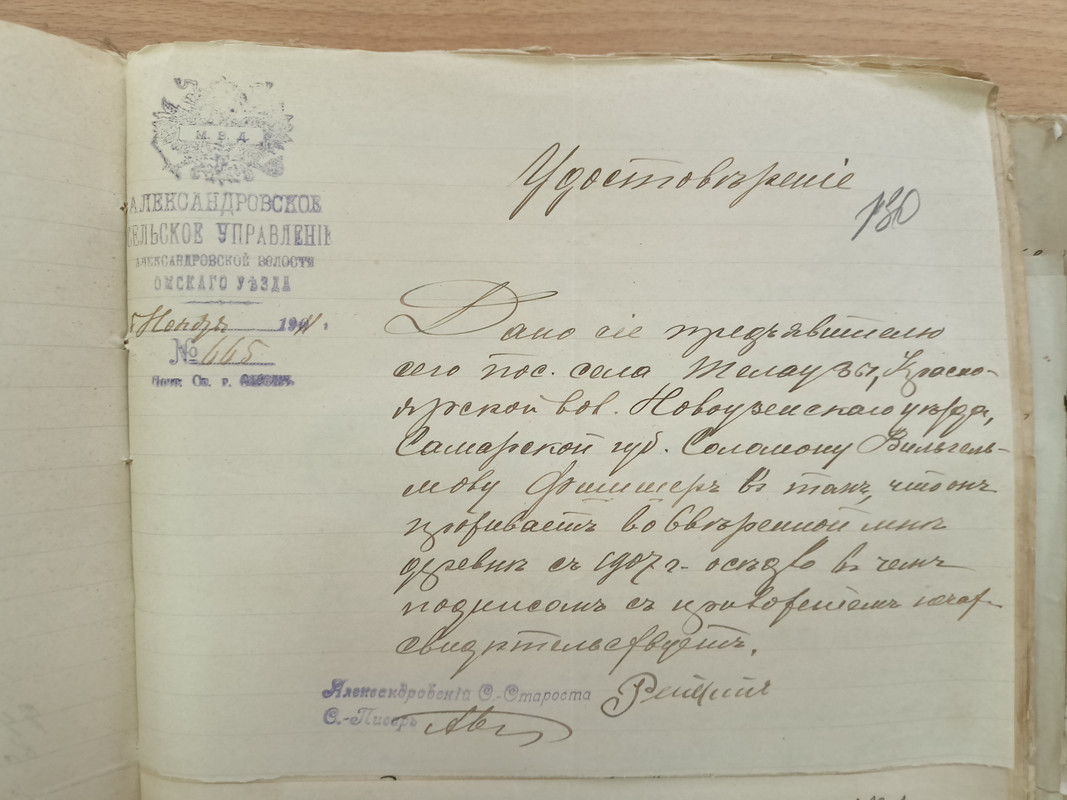 М. В. Д.
АЛЕКСАНДРОВСКОЕ
СЕЛЬСКОЕ УПРАВЛЕНІЕ
АЛЕКСАНДРОВСКОЙ ВОЛОСТИ
ОМСКАГО УѢЗДА
Ноября 1911 г.
№ 665
Удостовѣреніе
130
Дано сіе предъявителю
сего пос. села Телаузы, Красно-
ярской вол. Новоузенскаго уѣзда,
Самарской губ. Соломону Вильгель-
мову Фишеръ въ томъ, что онъ
проживаетъ во ввѣренной мнѣ
деревнѣ съ 1907 г. осѣдло въ чемъ
подписомъ съ приложеніемъ печат.
свидѣтельствуетъ.
Александровскій С.-Староста
С.-Писарь